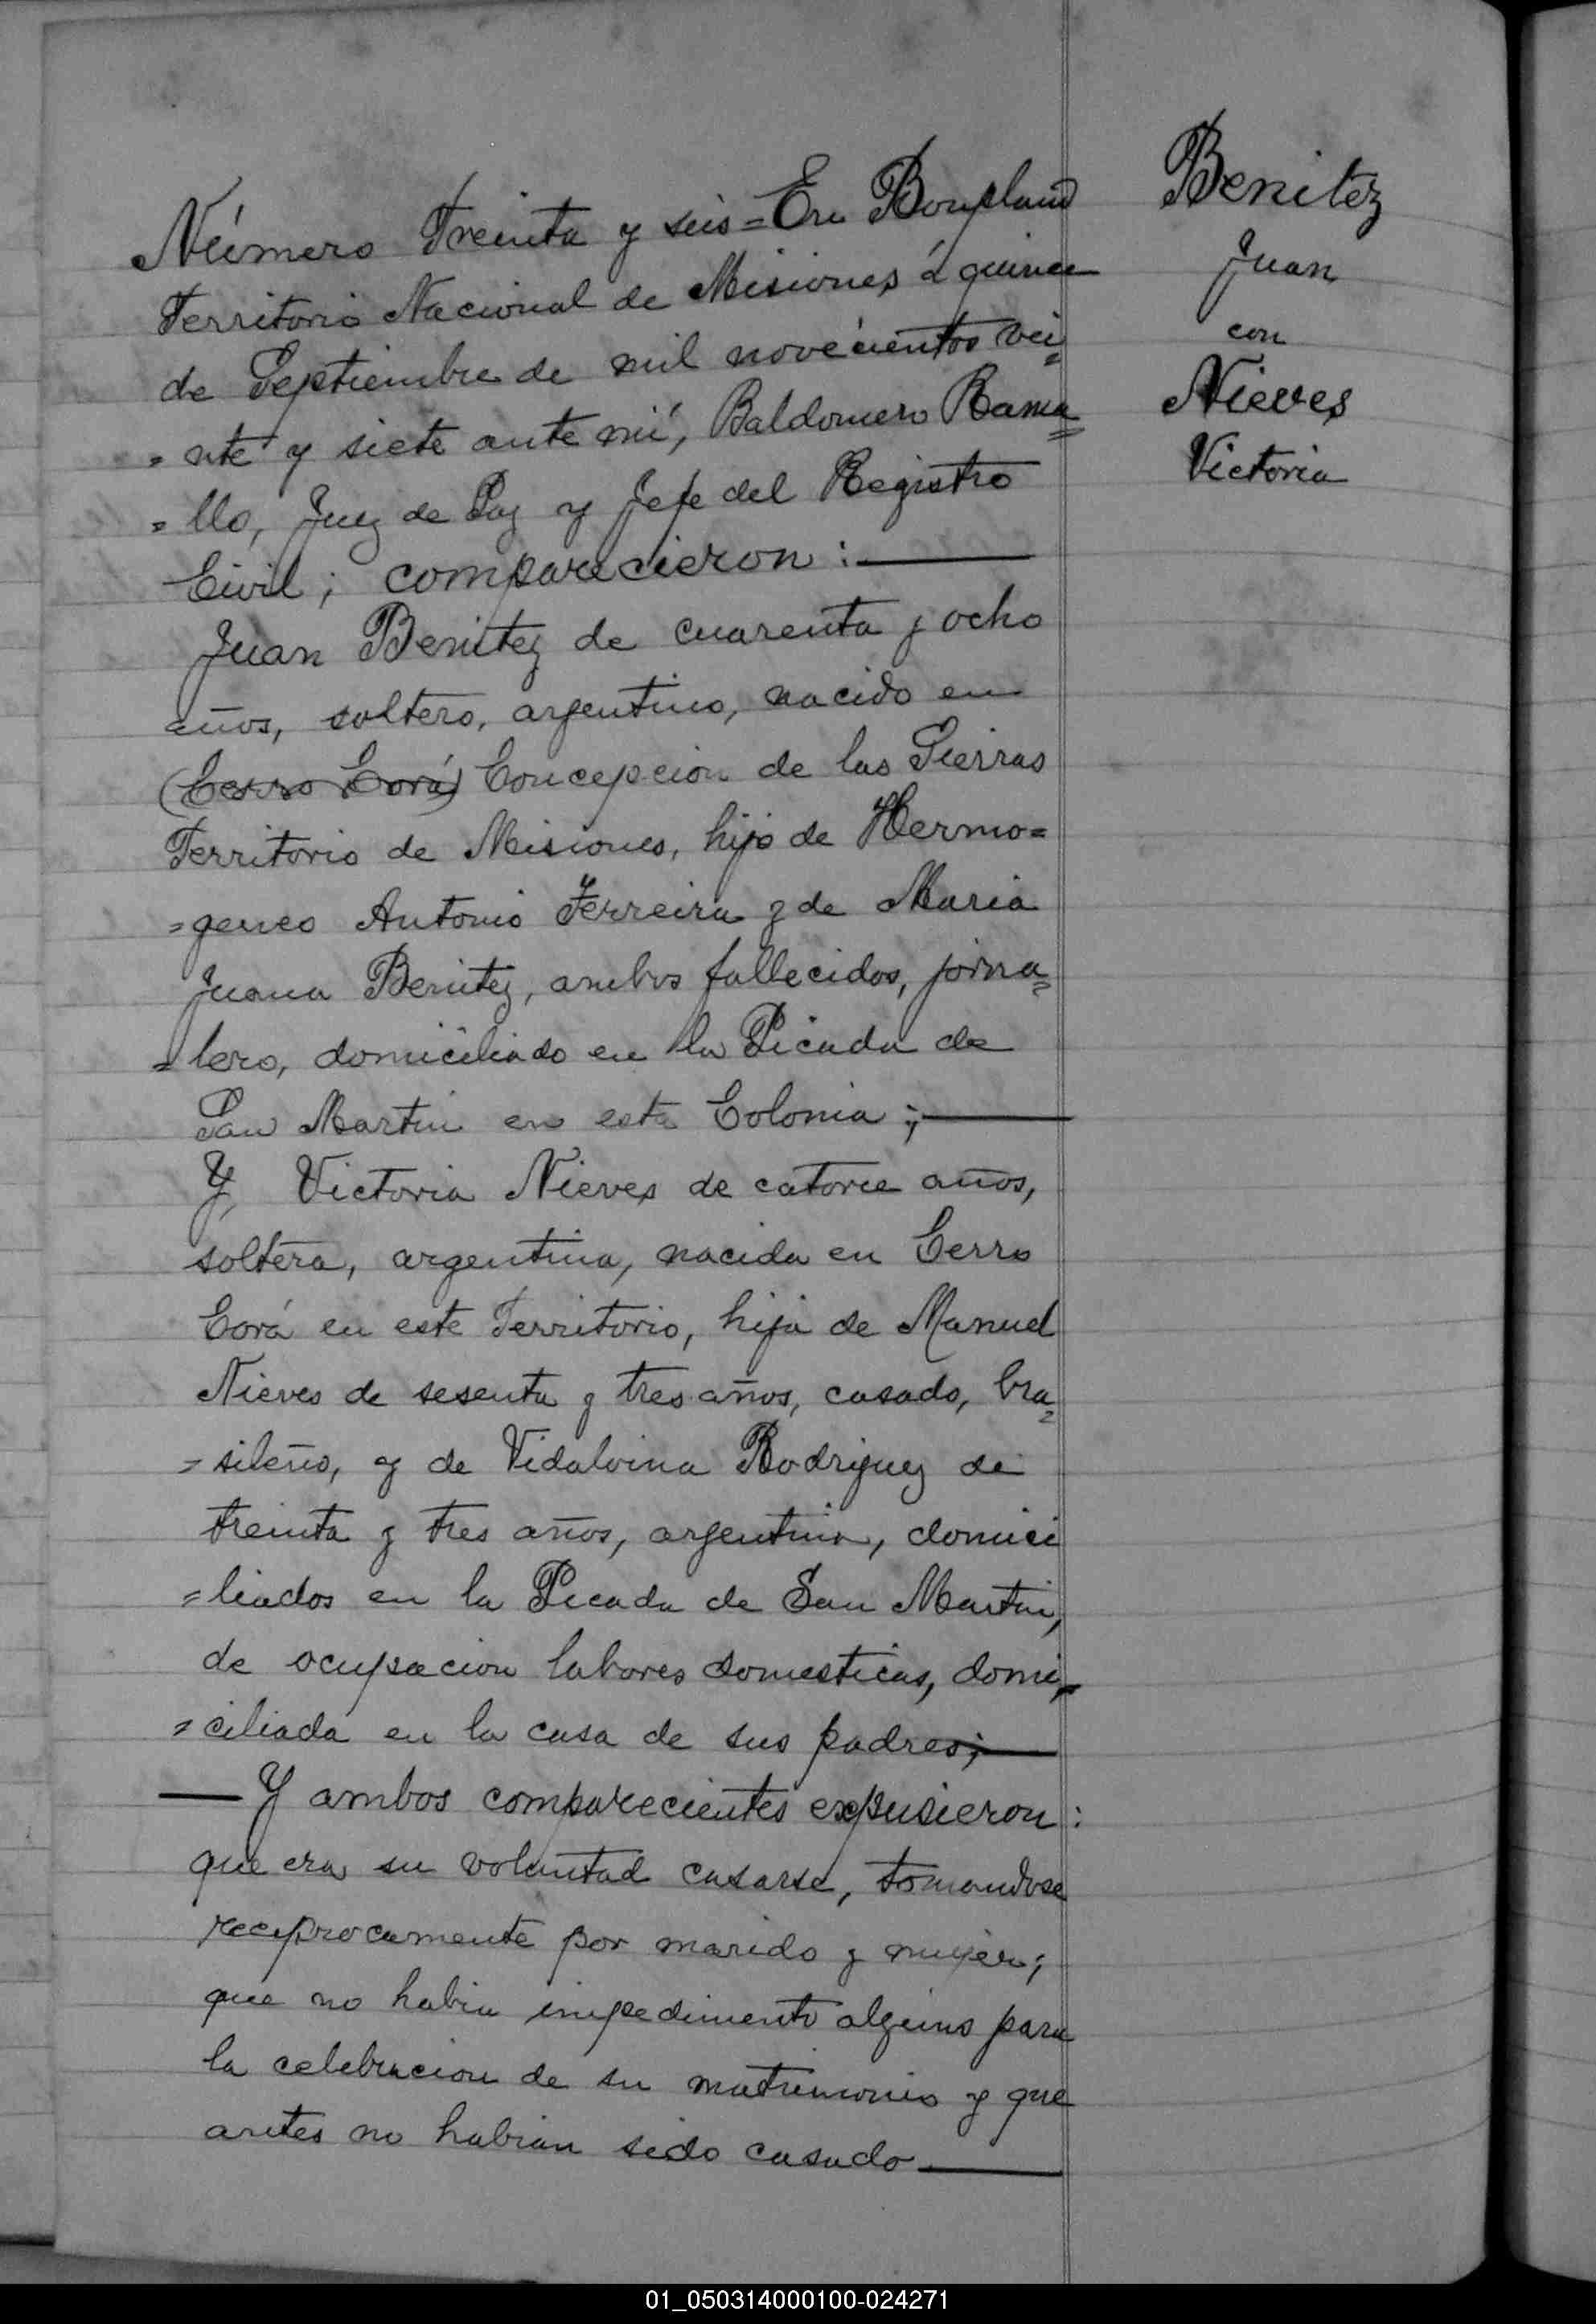 Número Treinta y seis = En Bonpland
Territorio Nacional de Misiones á quince
de Septiembre de mil novecientos vei=
=nte y siete ante mí, Baldomero Rama=
=llo, Juez de Paz y Jefe del Registro
Civil; comparecieron:
Juan Benitez de cuarenta y ocho
años, soltero, argentino, nacido en
(Cerro Corá) Concepcion de las Sierras
Territorio de Misiones, hijo de Hermo=
=genes Antonio Ferreira y de Maria
Juana Benitez, ambos fallecidos, jorna=
=lero, domiciliado en la Picada de
San Martin en esta Colonia;
Y, Victoria Nieves de catorce años,
soltera, argentina, nacida en Cerro
Corá en este Territorio, hija de Manuel
Nieves de sesenta y tres años, casado, bra=
=sileño, y de Vidalvina Rodriguez de
treinta y tres años, argentina, domici
=liados en la Picada de San Martin,
de ocupacion labores domesticas, domi=
=ciliada en la casa de sus padres;
Y ambos comparecientes expusieron:
que era su voluntad casarse, tomandose
reciprocamente por marido y mujer;
que no habia impedimento alguno para
la celebracion de su matrimonio y que
antes no habian sido casado
Benitez
Juan
con
Nieves
Victoria
01_050314000100-024271